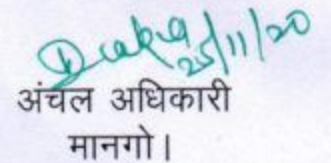 25/11/20
अंचल अधिकारी
मानगो।